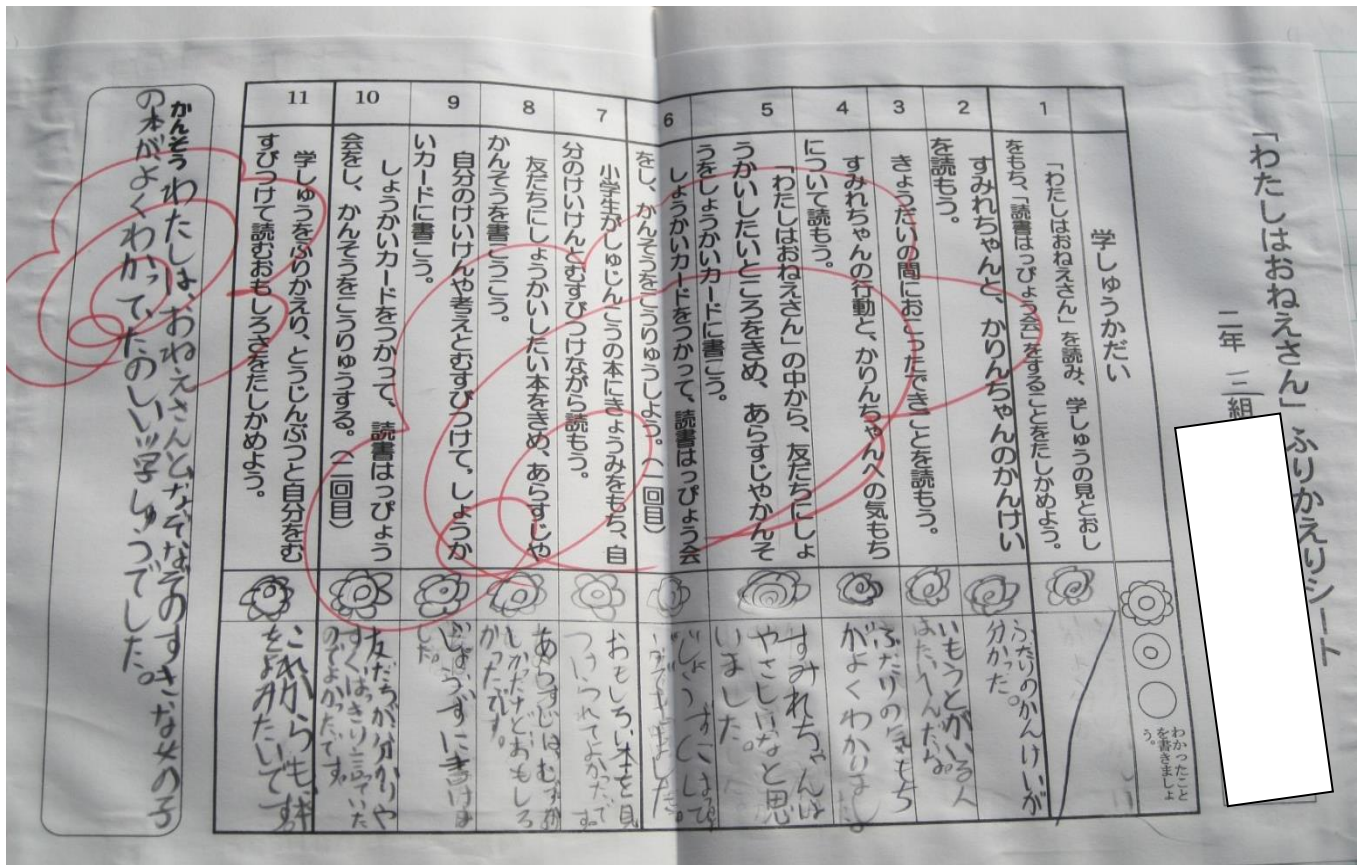 「わたしはおねえさん」ふりかえりシート
二年 三組
学しゅうかだい
わかったこと
を書きましょ
う。
1
「わたしはおねえさん」を読み、学しゅうの見とおし
をもち、「読書はっぴょう会」をすることをたしかめよう。
2
すみれちゃんと、かりんちゃんのかんけい
を読もう。
ふたりのかんけいが
分かった。
3
きょうだいの間におこったできごとを読もう。
いもうとがいる人
はたいへんだな。
4
すみれちゃんの行動と、かりんちゃんへの気もち
について読もう。
ふたりの気もち
がよくわかりました
5
「わたしはおねえさん」の中から、友だちにしょ
うかいしたいところをきめ、あらすじやかんそ
うをしょうかいカードに書こう。
すみれちゃんは
やさしいなと思
いました。
6
しょうかいカードをつかって、読書はっぴょう会
をし、かんそうをこうりゅうしよう。(一回目)
じょうずにはっぴ
7
小学生がしゅじんこうの本にきょうみをもち、自
分のけいけんとむすびつけながら読もう。
おもしろい本を見
つけられてよかったです。
8
友だちにしょうかいしたい本をきめ、あらすじや
かんそうを書こうこう。
あらすじはむずか
しかったけどおもしろ
かったです。
9
自分のけいけんや考えとむすびつけて、しょうか
いカードに書こう。
じょうずに書けま
した。
10
しょうかいカードをつかって、読書はっぴょう
会をし、かんそうをこうりゅうする。(二回目)
友だちが分かりや
すくはっきり言っていた
のでよかったです。
11
学しゅうをふりかえり、とうじんぶつと自分をむ
すびつけて読むおもしろさをたしかめよう。
これからも
をよみたいです
かんそう
わたしは、おねえさんとなぞなぞのすきな女の子
の本が、よくわかって、たのしい学しゅうでした。